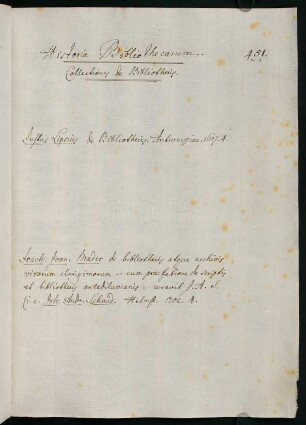 Historia Bibliothecarum.
451.
Collectiones de Bibliothecis.
Justus Lipsius de Bibliothecis, Antwerpiae. 1607. 4.
Joach. Joan. Mader de bibliothecis atque archivis
virorum clarissimorum - cum praefatione de scriptis
et bibliothecis antediluvianis - curavit J. A. S.
(i. e. Joh. Andr. Schmid. Helmst. 1702. 4.